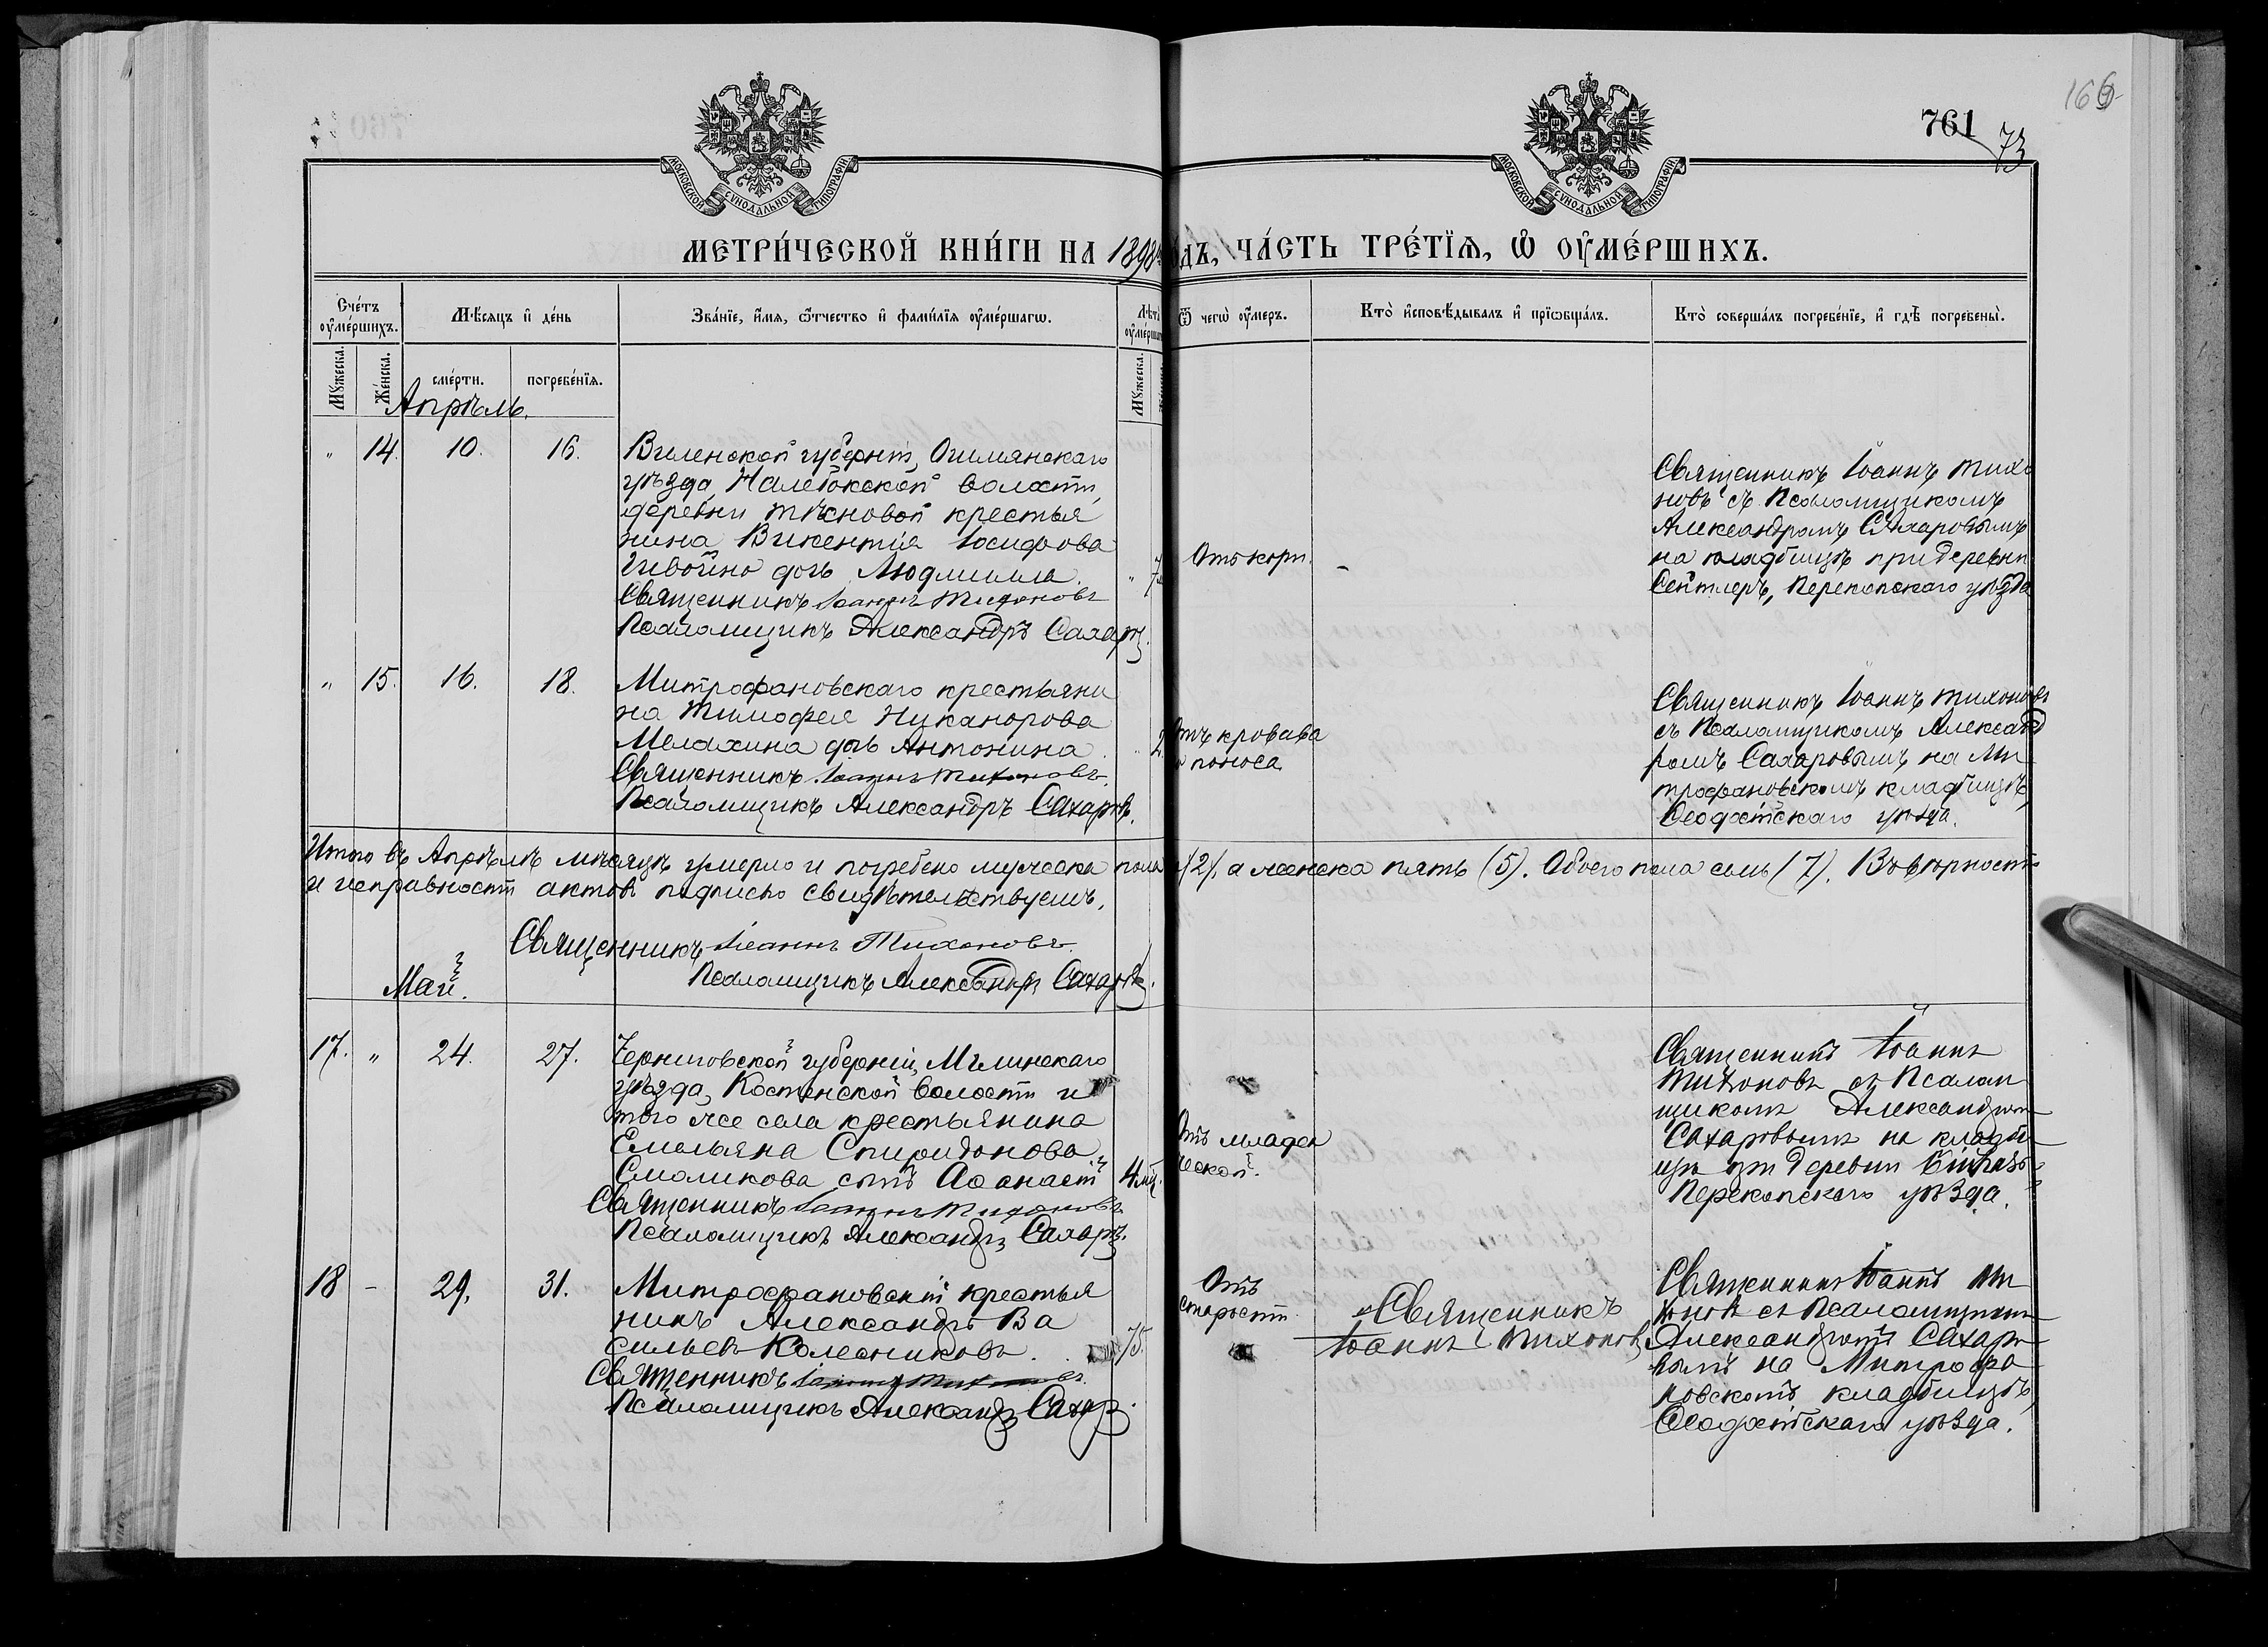 166
761
73
МОСКОВСКОЙ СѴНОДАЛЬНОЙ ТИПОГРАФІИ
МОСКОВСКОЙ СѴНОДАЛЬНОЙ ТИПОГРАФІИ
МЕТРИ́ЧЕСКОЙ КНИ́ГИ НА 1898 ГОДЪ, ЧА́СТЬ ТРЕ́ТІѦ, Ѡ ОУМЕ́РШИХЪ.
Сче́тъ оумершихъ.
Мѣсяцъ и де́нь
Зва́нїе, имя, ѻтчество и фами́лїя оуме́ршагѡ.
Лѣта оумершаг
Ѿ чегѡ оумеръ.
Кто исповѣдывалъ и прїѡбщалъ.
Кто соверша́лъ погребе́нїе, и гдѣ погребены.
Мꙋжеска.
Же́нска.
сме́рти.
погребе́нїя.
Мꙋжеска.
Апрѣль.
" 14. 10. 16.
Виленской губерніи, Ошмянскаго
уѣзда, Налибокской волости,
деревни Тѣсновой крестья
нина Викентія Іосифова
дочь Людмилла.
Священникъ Іоаннъ Тихоновъ
Псаломщикъ Александръ Сахаръ.
" 7
Отъ кори.
-
Священникъ Іоаннъ Тихо
новъ съ Псаломщикомъ
Александромъ Сахаровымъ
на кладбищѣ при деревни
Сейтлеръ, Перекопскаго уѣзда
" 15. 16. 18.
Митрофановскаго крестьяни
на Тимофея Никанорова
Малахина дочь Антонина.
Священникъ Іоаннъ Тихоновъ.
Псаломщикъ Александръ Сахаровъ.
" 2
Отъ кровава
го поноса.
Священникъ Іоаннъ Тихоновъ
съ Псаломщикомъ Александ
ромъ Сахаровымъ на Ми
трофановскомъ кладбищѣ,
Ѳеодосійскаго уѣзда.
Итого въ Апрѣлѣ мѣсяцѣ умерло и погребено мужеска пола (2), а женска пять (5). Обоего пола семь (7). Въ вѣрности
и исправности актовъ подписью свидѣтельствуемъ.
Священникъ Іоаннъ Тихоновъ.
Псаломщикъ Александръ Сахаровъ.
Май.
17. " 24. 27.
Черниговской губерніи, Мглинскаго
уѣзда, Костенской волости и
того же села крестьянина
Емельяна Спиридонова
Смоликова сынъ Аѳанасій
Священникъ Іоаннъ Тихоновъ
Псаломщикъ Александръ Сахаръ.
4 мѣ.
Отъ младен
ческой.
Священникъ Іоаннъ
Тихоновъ съ Псалом
щикомъ Александромъ
Сахаровымъ на кладби
щѣ при деревни
Перекопскаго уѣзда.
18 - 29. 31.
Митрофановскій крестья
нинъ Александръ Ва
сильевъ Колесниковъ.
Священникъ Іоаннъ Тихоновъ.
Псаломщикъ Александръ Сахаръ.
75.
Отъ
старости.
Священникъ
Іоаннъ Тихоновъ
Священникъ Іоаннъ Ти
хоновъ съ Псаломщикомъ
Александромъ Сахаро
вымъ на Митрофа
новскомъ кладбищѣ,
Ѳеодосійскаго уѣзда.